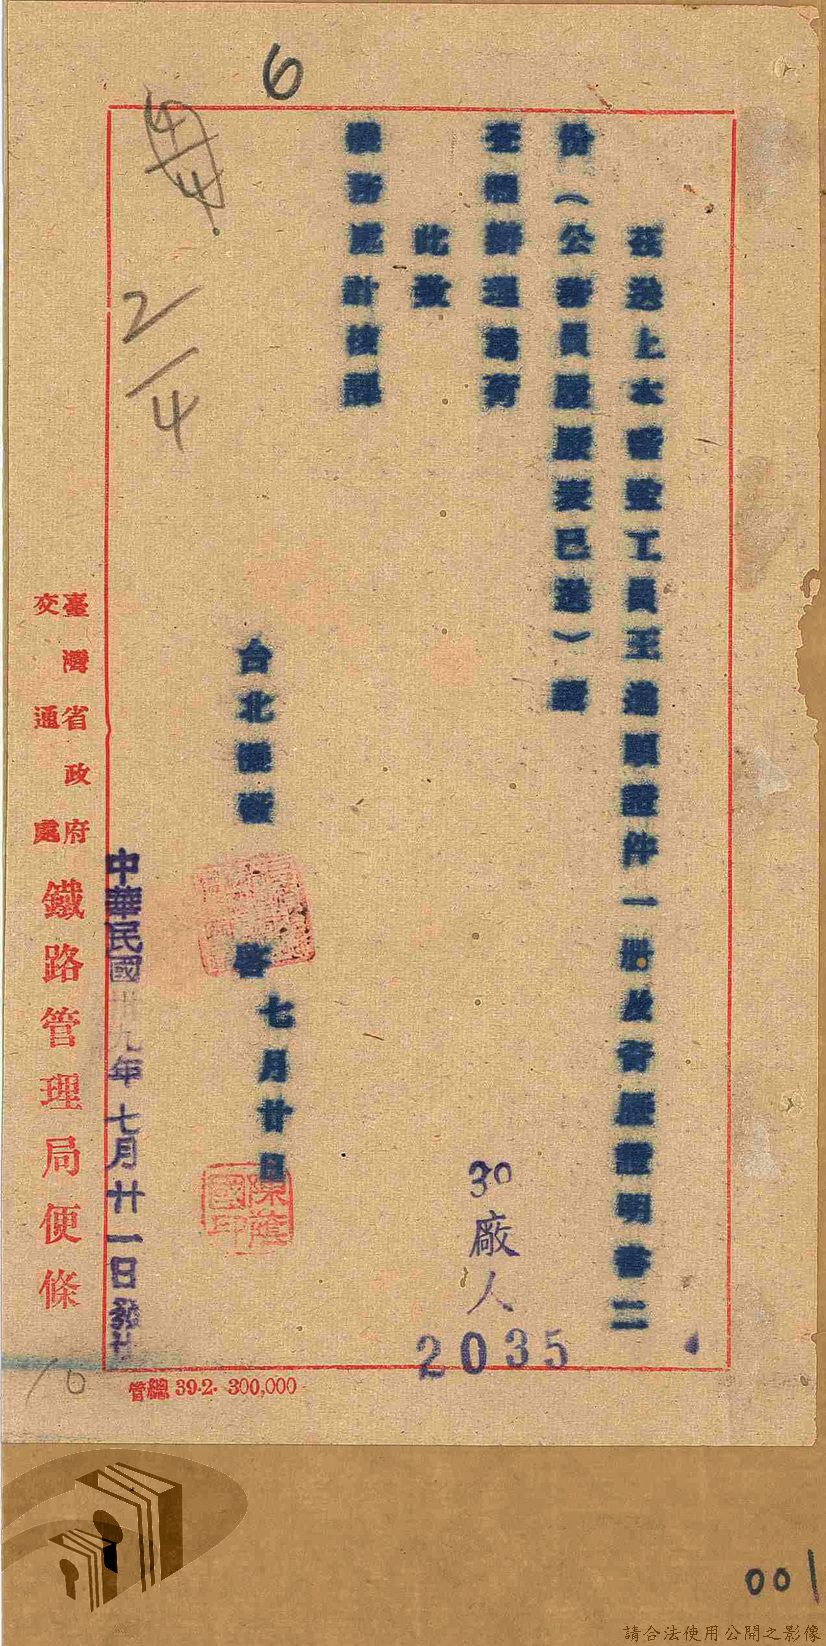 6
4/4
2/4
茲送上本廠監工員王進順證件一册及資歷證明書二
份(公務員履歷表已送)請
查照辦理爲荷
此致
機務處計核課
台北機廠
啓
七月廿日
陳蓬國印
30廠人
2035
中華民國卅九年七月廿一日發出
臺灣省政府
交通處
鐵路管理局便條
管總 39·2· 300,000
10
001
請合法使用公開之影像